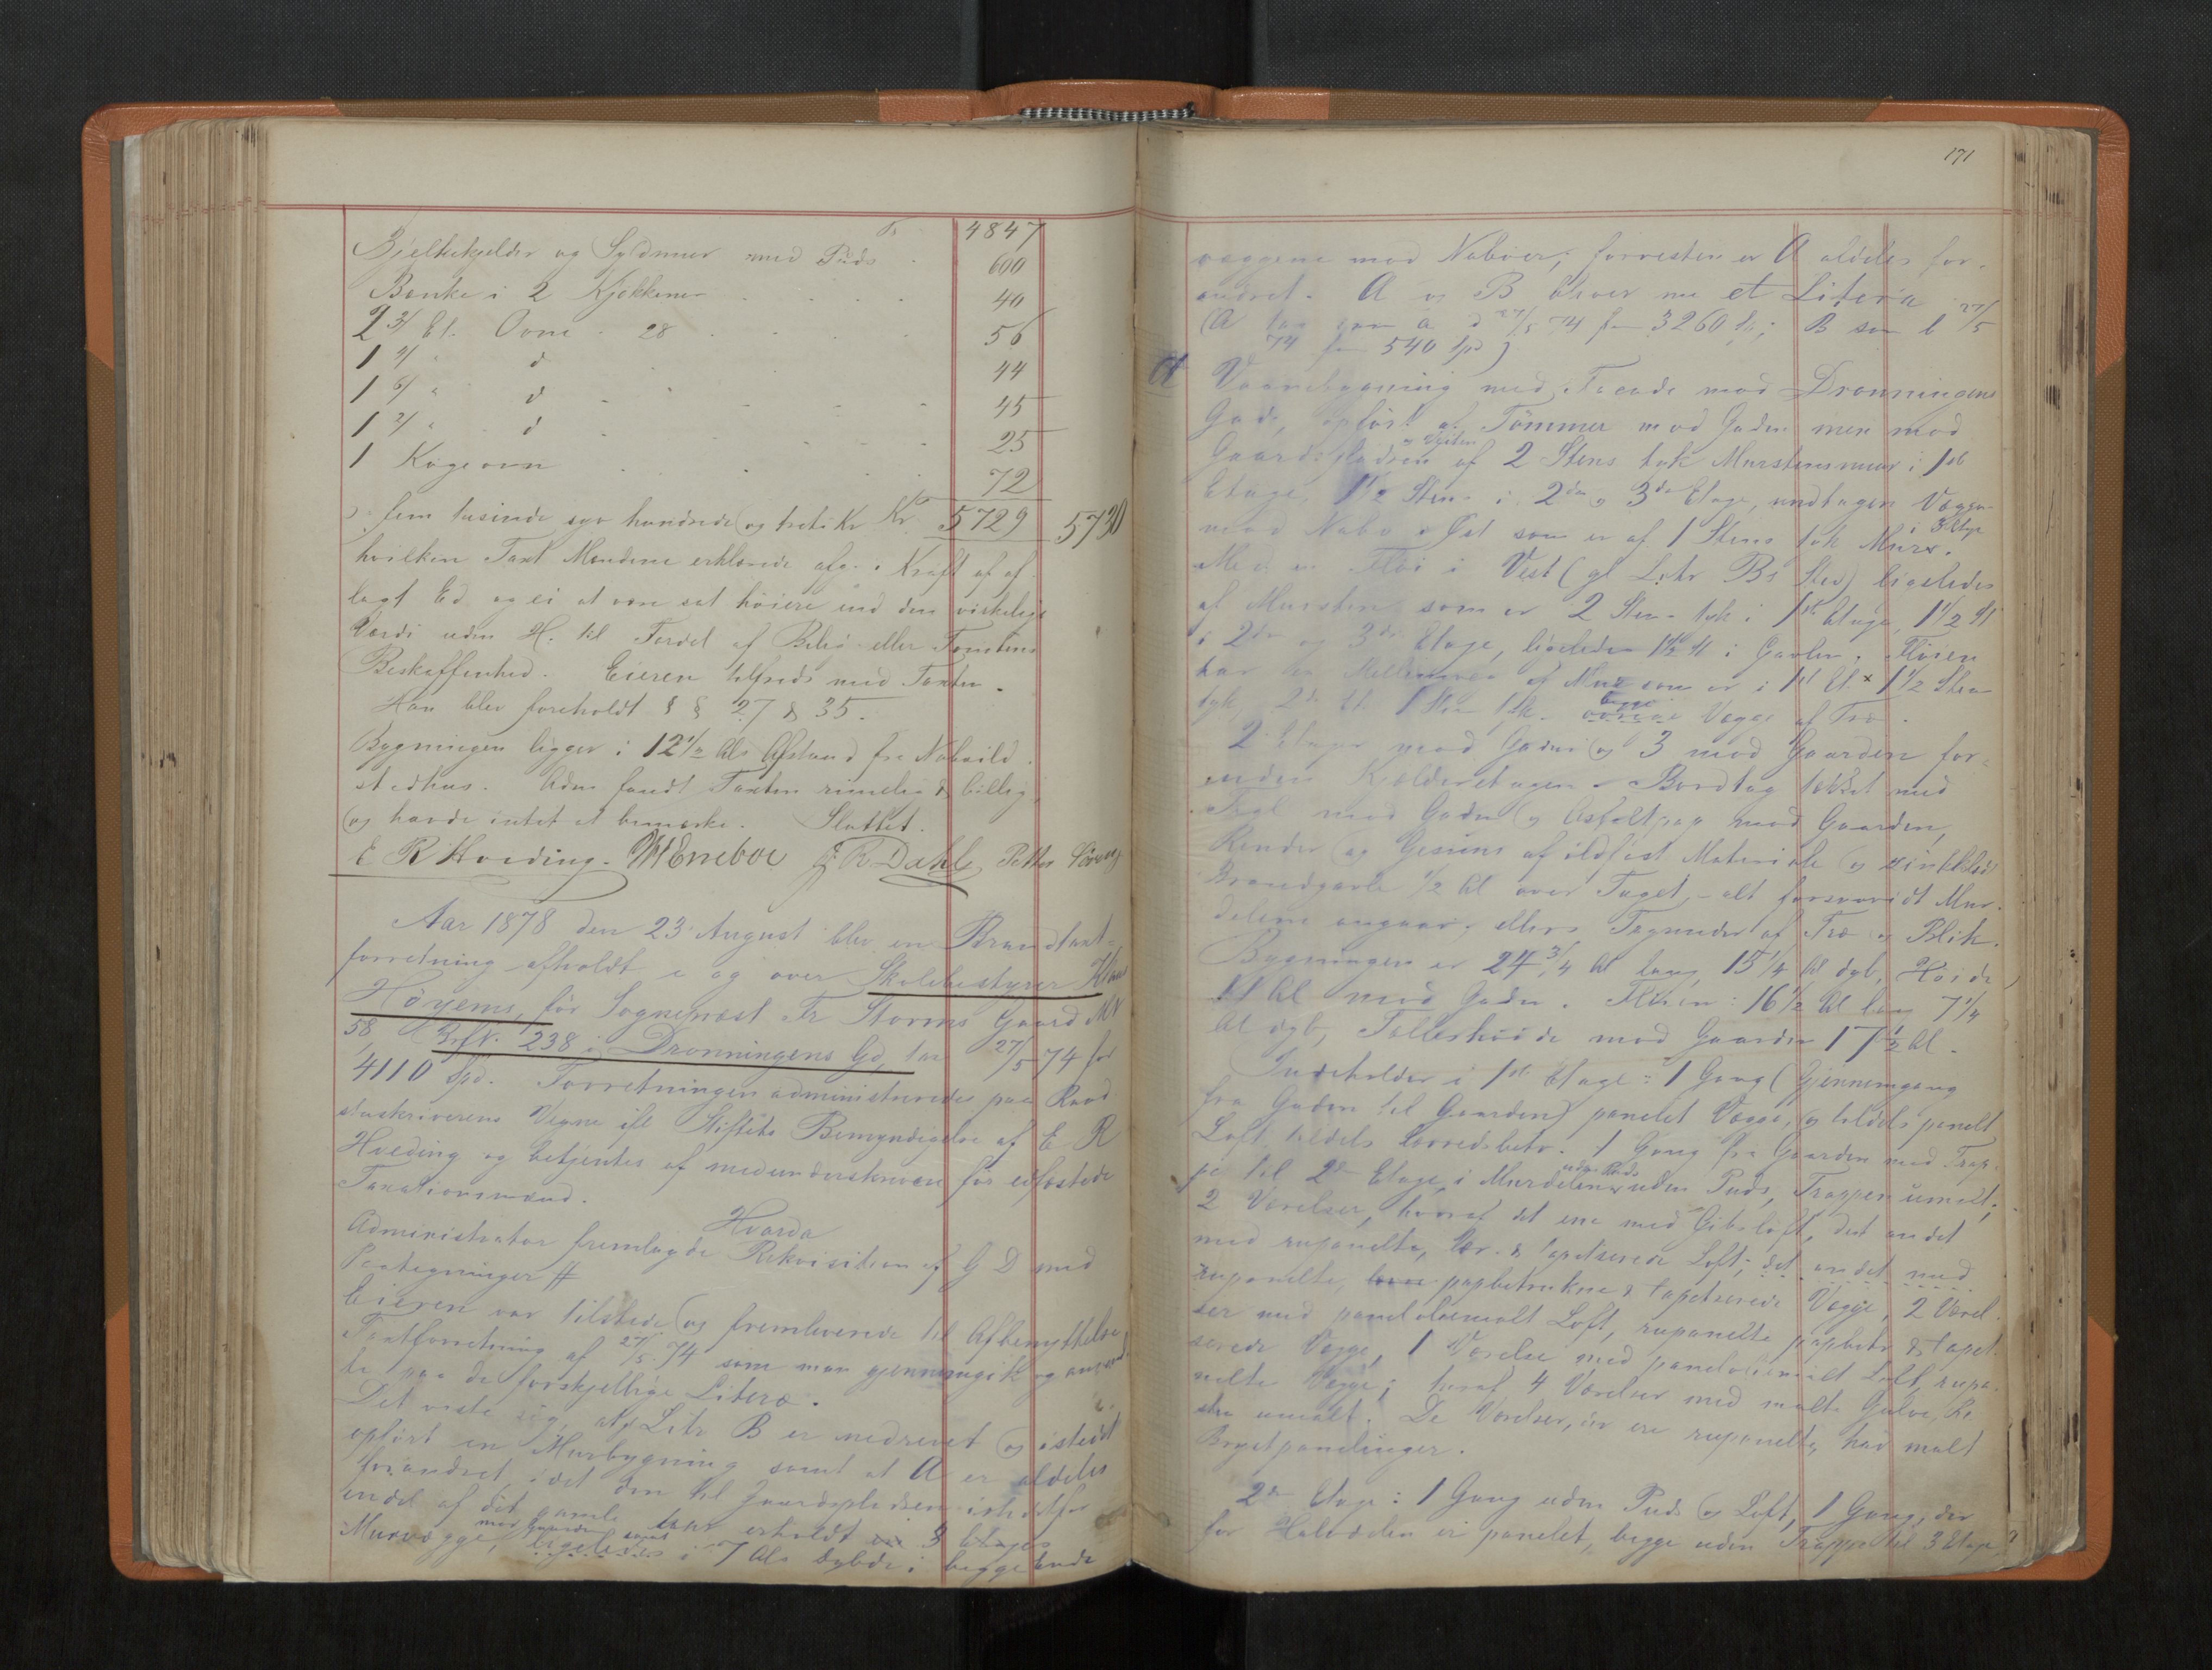 Ts 4847
Bjelkekjelder og Syldmuur med Puds 600
Bænke i 2 Kjøkkener 40
2 3/ Et. Ovne 28 56
1 4/ " d 44
1 6/ " d 45
1 2/ " d 25
1 Kogeovn 72
fem tusinde syv hundrede og treti Kr Kr 5729 5730
hvilken Taxt Mændene erklærede afg. i Kraft af af-
lagt Ed og ei at være sat høiere end den virkelige
Værdi uden H. til Fordel af Belig. eller Tomtens
Beskaffenhed. Eieren tilfreds med Taxten.
Han blev foreholdt § § 27 & 35.
Bygningen ligger i 12 1/2 Als Afstand fra Naboild-
stedhus. Adm fandt Taxten rimelig & billig,
og havde intet at bemærke. Sluttet.
E R Hveding. Eneboe R Dahl Petter
Aar 1878 den 23 August blev en Brandtaxt-
forretning afholdt i og over Skolebestyrer Hans
Høyems, før Sogneprest Fr Storms Gaard Mt
58, Brf N. 238 i Dronningens Gd, tax 27/5 74 for
4110 Spd. Forretningen administreredes paa Raad
stuskriverens Vegne ifl Stiftets Bemyndigelse af E R
Hveding og betjentes af medunderskrevne før edfæstede
Taxationsmænd.
Hvorda
Administrator fremlagde Rekvisition af G D med
Paategninger #
Eieren var tilstede og fremleverede til Afbenyttelse
Taxtforretning af 27/5 74 som man gjennemgik og
de paa de forskjellige Litera.
Det viste sig, at Litr B er nedrevet og istedet
opført en Murbygning samt at A er aldeles
forandret, idet den til Gaardspladsen istedetfor
endel af det gamle har erholdt 3 Etages
Murvægge, mod Gaarden samt ligeledes i 7 Als Dybde i begge Ender
171
væggene mod Naboer; forresten er A aldeles for-
andret. A og B bliver nu et Litera
(A tax som a d 27/5 74 for 3260 Sp; B som b 27/5
74 for 540 Spd)
A Vaanebygning med Facade mod Dronningens
Gade, opført af Tømmer mod Gaden men mod
Gaardspladsen af 2 Stens tyk Murstensmuur i 1ste
Etage, 1 1/2 Sten i 2den og 3die Etage, undtagen Væggen
mod Nabo i Øst som er af 1 Stens tyk Mur i 3 Etage.
Med en Fløi i Vest (gl Litr Bs Sted) ligeledes
af Mursten som er 2 Sten tyk i 1ste Etage, 1 1/2 St
i 2den og 3die Etage, ligeledes 1 1/2 St i Gavlen. Fløien
har en Mellemvæg af Mur som er i 1st Et. 1 1/2 Sten
tyk 2de Et. 1 Sten tyk. begge øvrige Vægge af Træ.
2 Etager mod Gaden og 3 mod Gaarden for-
uden Kjælderetagen. Bordtag tækket med
Tegl mod Gaden og Asfaltpap mod Gaarden,
Render og Gesims af ildfast Materiale og zinkklæd
Brandgavle 1/2 Al over Taget, - alt forsaavidt Mur-
delene angaar; ellers Tagrender af Træ og Blik.
Bygningen er 24 3/4 Al lang, 15 1/4 Al dyb, Høide
11 Al mod Gaden. Fløien: 16 1/2 Al lang 7 1/4
Al dyb, Fælleshøide mod Gaarden 17 1/2 Al.
Indeholder i 1ste Etage: 1 Gang (Gjennemgang
fra Gaden til Gaarden) panelet Vægge, og tildels panelt
Loft, tildels lærredsbetr. 1 Gang fra Gaarden med Trap-
pe til 2d Etage, i Murdelen uden Puds, Trappen umalt;
2 Værelser, hvoraf det ene med Gibsloft, det andet
med rupanelte, lær. & tapetserede Loft; det andet med
rupanelte, papbetrukne & tapetserede Vægge, 2 Værel-
ser med panel oliemalt Loft, rupanelte papbetr & tapet-
serede Vægge, 1 Værelse med panelet oliemalt Loft, rupa-
nelte Vægge; heraf 4 Værelser med malte Gulve, de
andre umalt. De Værelser, der ere rupanelte, har malt
Brystpanelinger.
2de Etage: 1 Gang uden Puds og Loft, 1 Gang, der
for Halvdelen er panelet, begge uden Trappe til 3 Etage